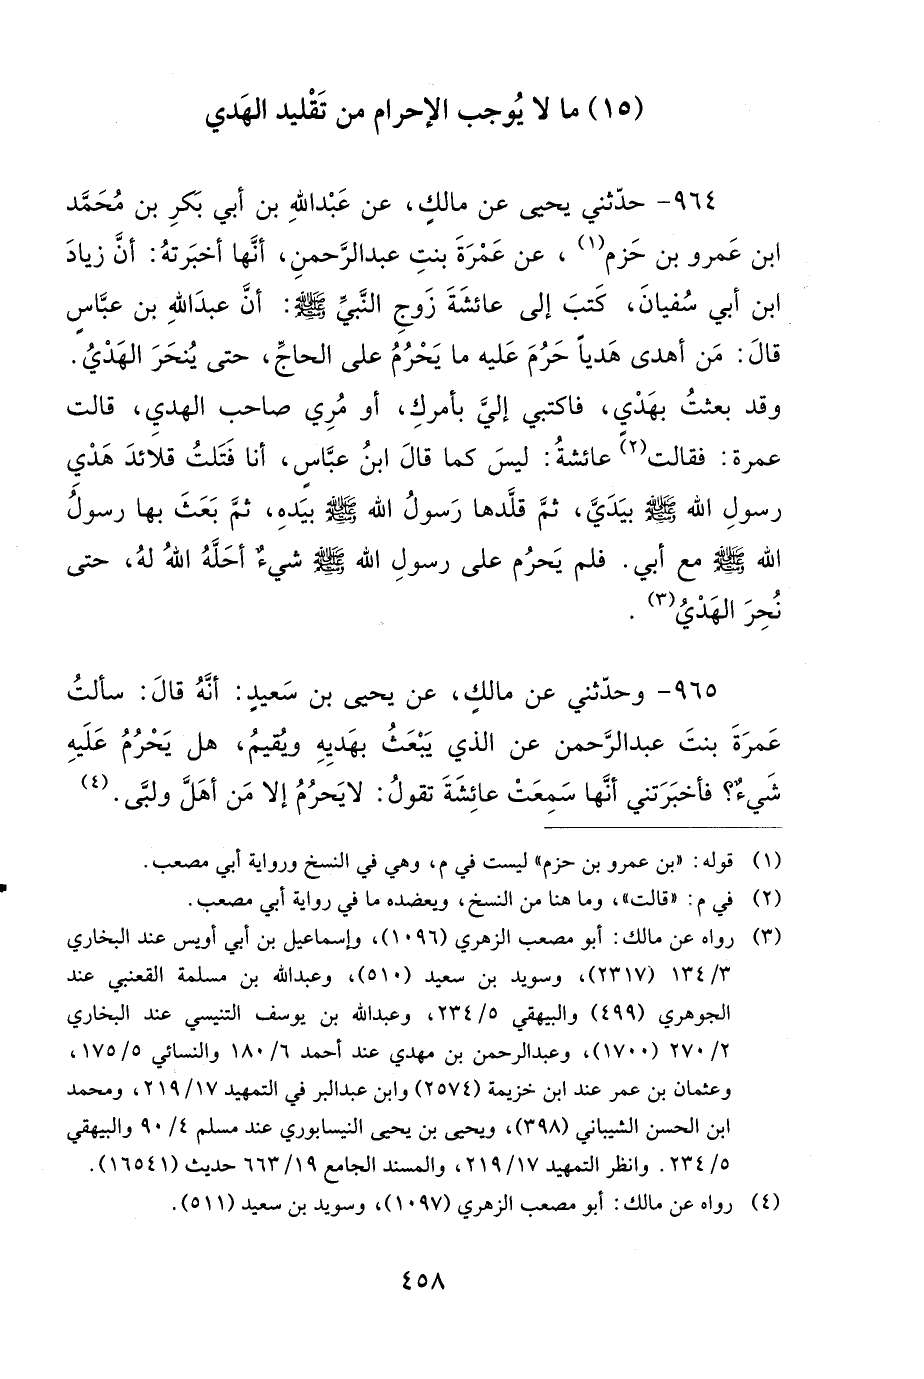 (١٥) ما لا يُوجب الإحرام من تَقْليد الهَدي
٩٦٤- حدّثني يحيى عن مالكٍ، عن عَبْدالله بن أبي بَكرِ بن مُحَمَّد
ابن عَمرو بن حَزم(١)، عن عَمْرَةَ بنتِ عبدالرَّحمنِ، أنَّها أخبَرتهُ: أنَّ زيادَ
ابن أبي سُفيانَ، كَتبَ إلى عائشَةَ زَوجِ النَّبيِّ ﷺ: أنَّ عبدَالله بن عبَّاسٍ
قالَ: مَن أهدى هَدياً حَرُمَ عَليه ما يَحْرُمُ على الحاجِّ، حتى يُنحَرَ الهَدْيُ.
وقد بعثتُ بهَدْي، فاكتبي إليَّ بأمركِ، أو مُرِي صاحب الهدي، قالت
عمرة: فقالت(٢) عائشةُ: ليسَ كما قالَ ابنُ عبَّاسٍ، أنا فَتَلتُ قلائدَ هَدْيِ
رسولِ الله ﷺ بيَدَيَّ، ثمَّ قلَّدها رَسولُ الله ﷺ بيَدهِ، ثمَّ بَعَثَ بها رسولُ
الله ﷺ مع أبي. فلم يَحرُم على رسولِ الله ﷺ شيءٌ أحَلَّهُ اللهُ لهُ، حتى
نُحِرَ الهَدْيُ(٣).
٩٦٥- وحدّثني عن مالكٍ، عن يحيى بن سَعيدٍ: أنَّهُ قالَ: سألتُ
عَمرَةَ بنتَ عبدالرَّحمن عن الذي يَبْعَثُ بهَديِهِ ويُقيمُ، هل يَحْرُمُ عَلَيهِ
شَيءٌ؟ فأخبَرَتني أنَّها سَمِعَتْ عائِشَةَ تقولُ: لايَحرُمُ إلا مَن أهَلَّ ولبَّى.(٤)
(١) قوله: «بن عمرو بن حزم» ليست في م، وهي في النسخ ورواية أبي مصعب.
(٢) في م: «قالت»، وما هنا من النسخ، ويعضده ما في رواية أبي مصعب.
(٣) رواه عن مالك: أبو مصعب الزهري (١٠٩٦)، وإسماعيل بن أبي أويس عند البخاري
٣/ ١٣٤ (٢٣١٧)، وسويد بن سعيد (٥١٠)، وعبدالله بن مسلمة القعنبي عند
الجوهري (٤٩٩) والبيهقي ٥/ ٢٣٤، وعبدالله بن يوسف التنيسي عند البخاري
٢/ ٢٧٠ (١٧٠٠)، وعبدالرحمن بن مهدي عند أحمد ٦/ ١٨٠ والنسائي ٥/ ١٧٥،
وعثمان بن عمر عند ابن خزيمة (٢٥٧٤) وابن عبدالبر في التمهيد ١٧/ ٢١٩، ومحمد
ابن الحسن الشيباني (٣٩٨)، ويحيى بن يحيى النيسابوري عند مسلم ٤/ ٩٠ والبيهقي
٥/ ٢٣٤. وانظر التمهيد ١٧/ ٢١٩، والمسند الجامع ١٩/ ٦٦٣ حديث (١٦٥٤١).
(٤) رواه عن مالك: أبو مصعب الزهري (١٠٩٧)، وسويد بن سعيد (٥١١).
٤٥٨